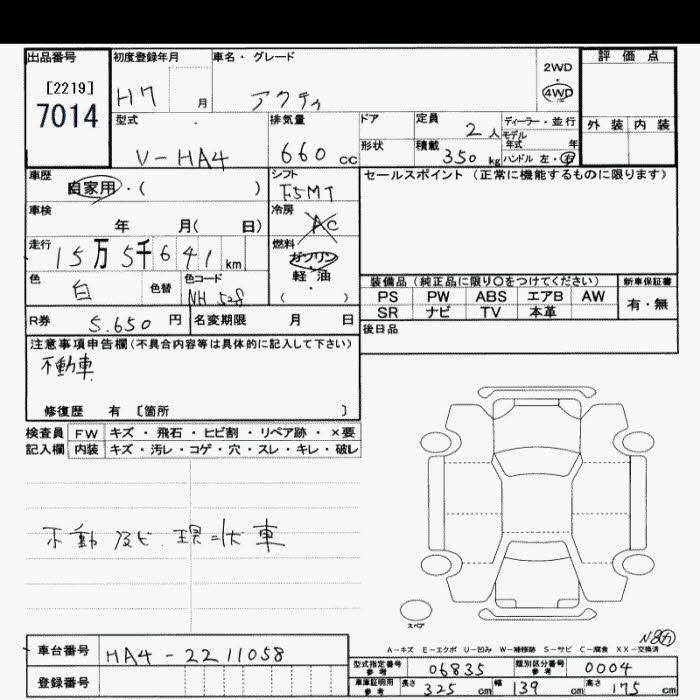 出品番号 初度登録年月 車名・グレード 2WD ・ 4WD 評価点
[2219]
7014
H7 月 アクティ
型式 排気量 ドア 定員 2人 ディーラー・並行 外装 内装
モデル年式 年
V-HA4 660cc 形状 積載 350kg ハンドル 左・右
車歴 シフト セールスポイント（正常に機能するものに限ります）
自家用・( ) F5MT
車検 冷房
年 月( 日) AC
走行 燃料
15万5千641km ガソリン
色 色替 色コード 軽・油
白 NH 528 ( )
装備品（純正品に限り○をつけてください） 新車保証書
PS PW ABS エアB AW 有・無
SR ナビ TV 本革
R券 5.650円 名変期限 月 日 後日品
注意事項申告欄（不具合内容等は具体的に記入して下さい）
不動車
修復歴 有 〔箇所 〕
検査員 FW キズ・飛石・ヒビ割・リペア跡・×要
記入欄 内装 キズ・汚レ・コゲ・穴・スレ・キレ・破レ
不動及ビ 現状車
スペア
A-キズ E-エクボ U-凹み W-補修跡 S-サビ C-腐食 XX-交換済
車台番号 HA4-2211058
登録番号
型式指定番号 参考 06835 類別区分番号 参考 0004
車庫証明用 参考 長さ 325cm 幅 139cm 高さ 175cm